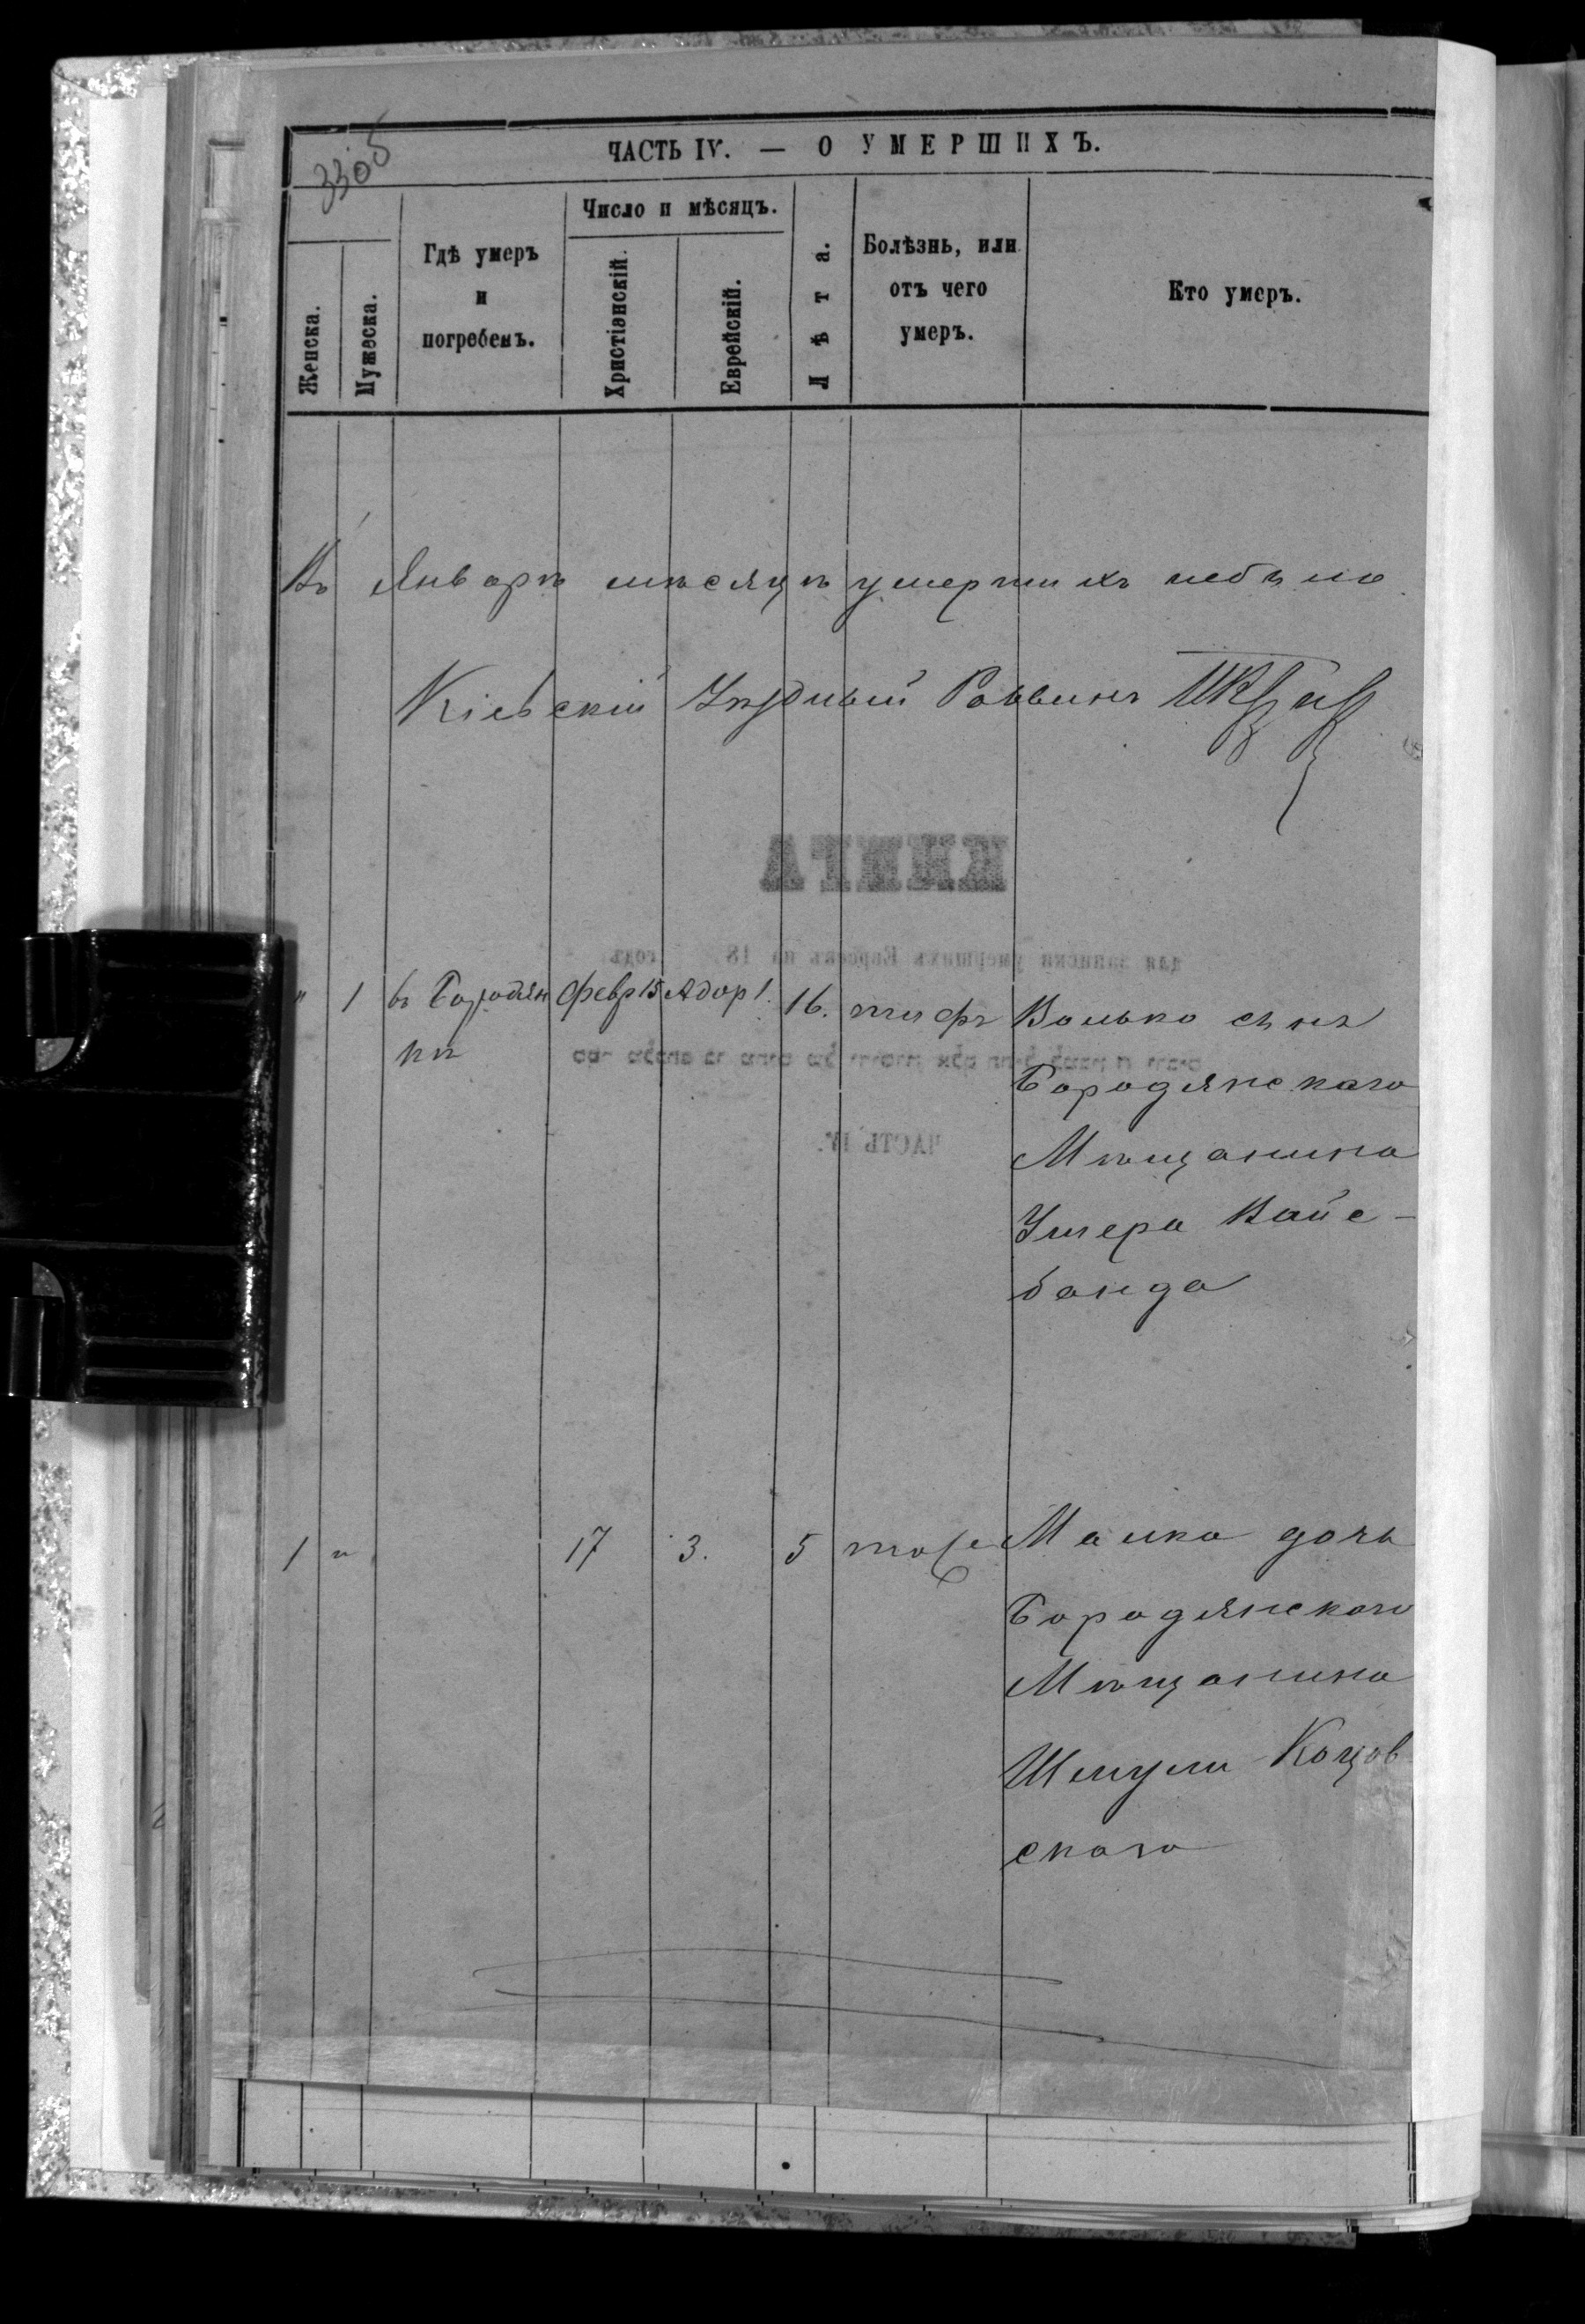 3305
ЧАСТЬ IV. — О УМЕРШИХЪ.
Женска.
Мужеска.
Гдѣ умеръ
и
погребенъ.
Число и мѣсяцъ.
Христіанскій.
Еврейскій.
Лѣта.
Болѣзнь, или
отъ чего
умеръ.
Кто умеръ.
Въ Январѣ мѣсяцѣ умершихъ небыло
Кіевскій Уѣздный Раввинъ
КНИГА
для записки умершихъ Евреевъ на 18 годъ.
ЧАСТЬ IV.
" 1 въ Бородян Февр 15 Адор 1. 16. тифъ Волько сынъ
кѣ
Бородянскаго
Мѣщанина
Ушера Вайс-
банда
1 " 17 3. 5 тоже Малка дочь
Бородянскаго
Мѣщанина
Шмули Коцов
скаго